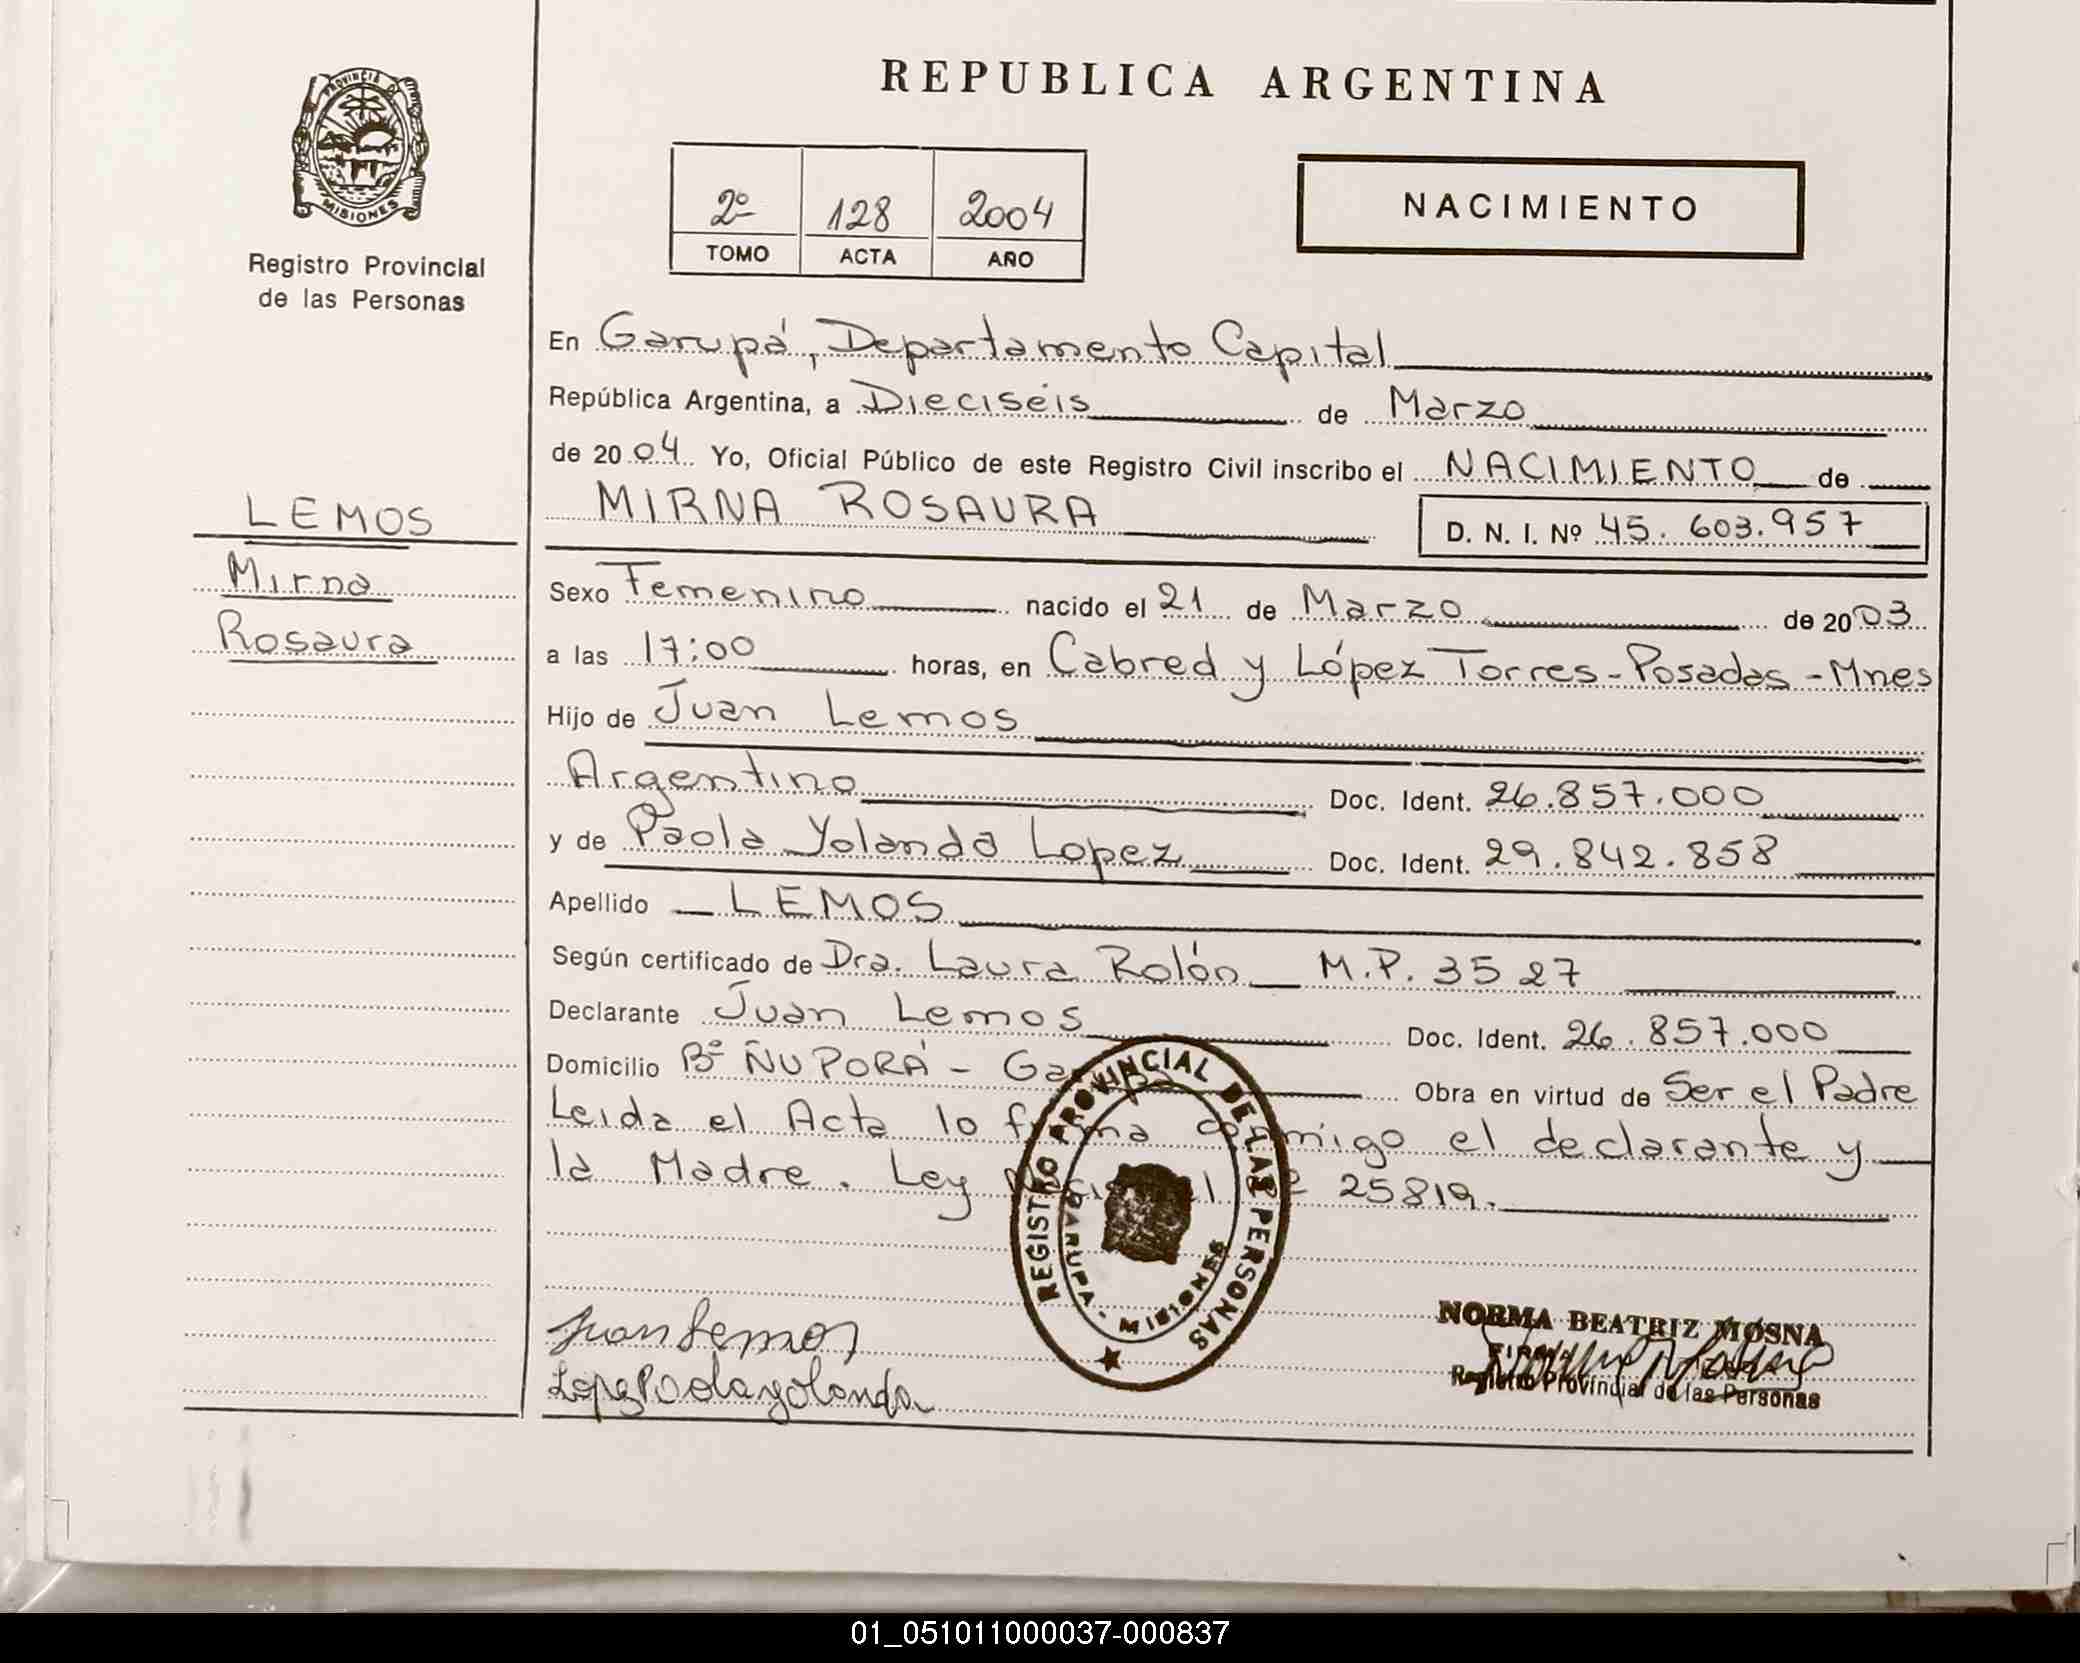 PROVINCIA DE
MISIONES
Registro Provincial
de las Personas
LEMOS
Mirna
Rosaura
REPUBLICA ARGENTINA
2º 128 2004
TOMO ACTA AÑO
NACIMIENTO
En Garupá, Departamento Capital
República Argentina, a Dieciséis de Marzo
de 2004 Yo, Oficial Público de este Registro Civil inscribo el NACIMIENTO de
MIRNA ROSAURA D. N. I. Nº 45.603.957
Sexo Femenino nacido el 21 de Marzo de 2003
a las 17:00 horas, en Cabred y López Torres-Posadas-Mnes
Hijo de Juan Lemos
Argentino Doc. Ident. 26.857.000
y de Paola Yolanda Lopez Doc. Ident. 29.842.858
Apellido LEMOS
Según certificado de Dra. Laura Rolón M.P. 3527
Declarante Juan Lemos Doc. Ident. 26.857.000
Domicilio Bº ÑU PORÁ - Garupá Obra en virtud de Ser el Padre
Leida el Acta lo firma conmigo el declarante y
la Madre. Ley Nacional Nº 25819.
REGISTRO PROVINCIAL DE LAS PERSONAS
GARUPA - MISIONES
Juan Lemos
Lopez Paola Yolanda
NORMA BEATRIZ MOSNA
Registro Provincial de las Personas
01_051011000037-000837